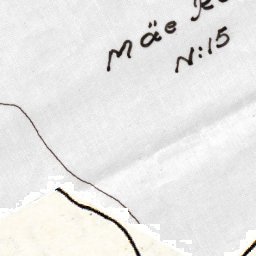 Mäe
N:15